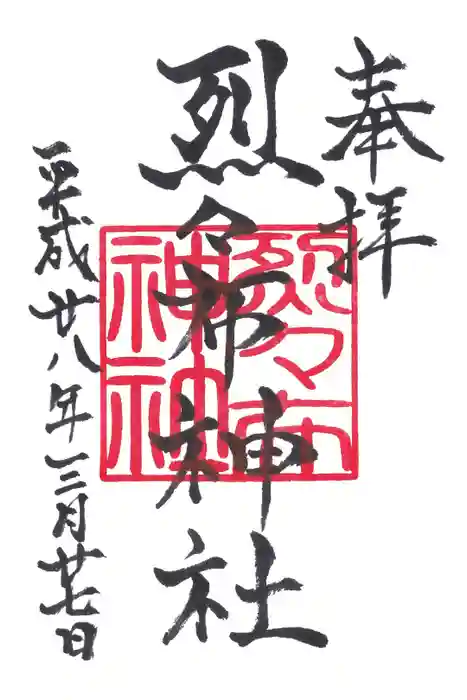 奉拝
烈々布神社
平成廿八年三月廿七日
烈々布
神社